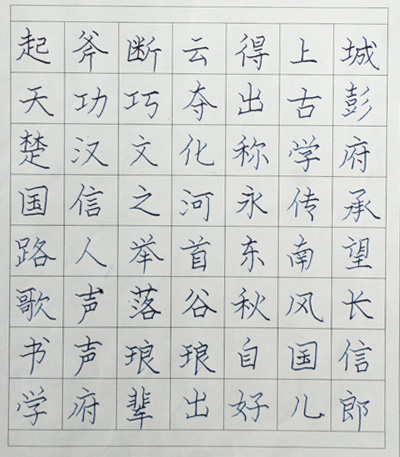 起斧断云得上城
天功巧夺出古彭
楚汉文化称学府
国信之河永传承
路人举首东南望
歌声落谷秋风长
书声琅琅自国信
学府辈出好儿郎